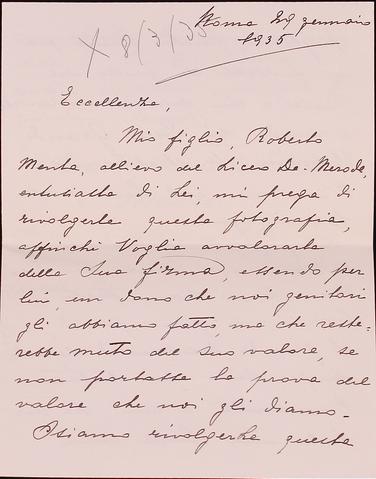 Roma 29 gennaio
1935
X 8/3/35
Eccellenza,
Mio figlio, Roberto
Menta, allievo del Liceo De-Merode,
entusiasta di Lei, mi prega di
rivolgerle questa fotografia,
affinchè Voglia avvalorarla
della Sua firma, essendo per
lui, un dono che noi genitori
gli abbiamo fatto, ma che reste-
rebbe muto del suo valore, se
non portasse la prova del
valore che noi gli diamo-
Osiamo rivolgerLe questa